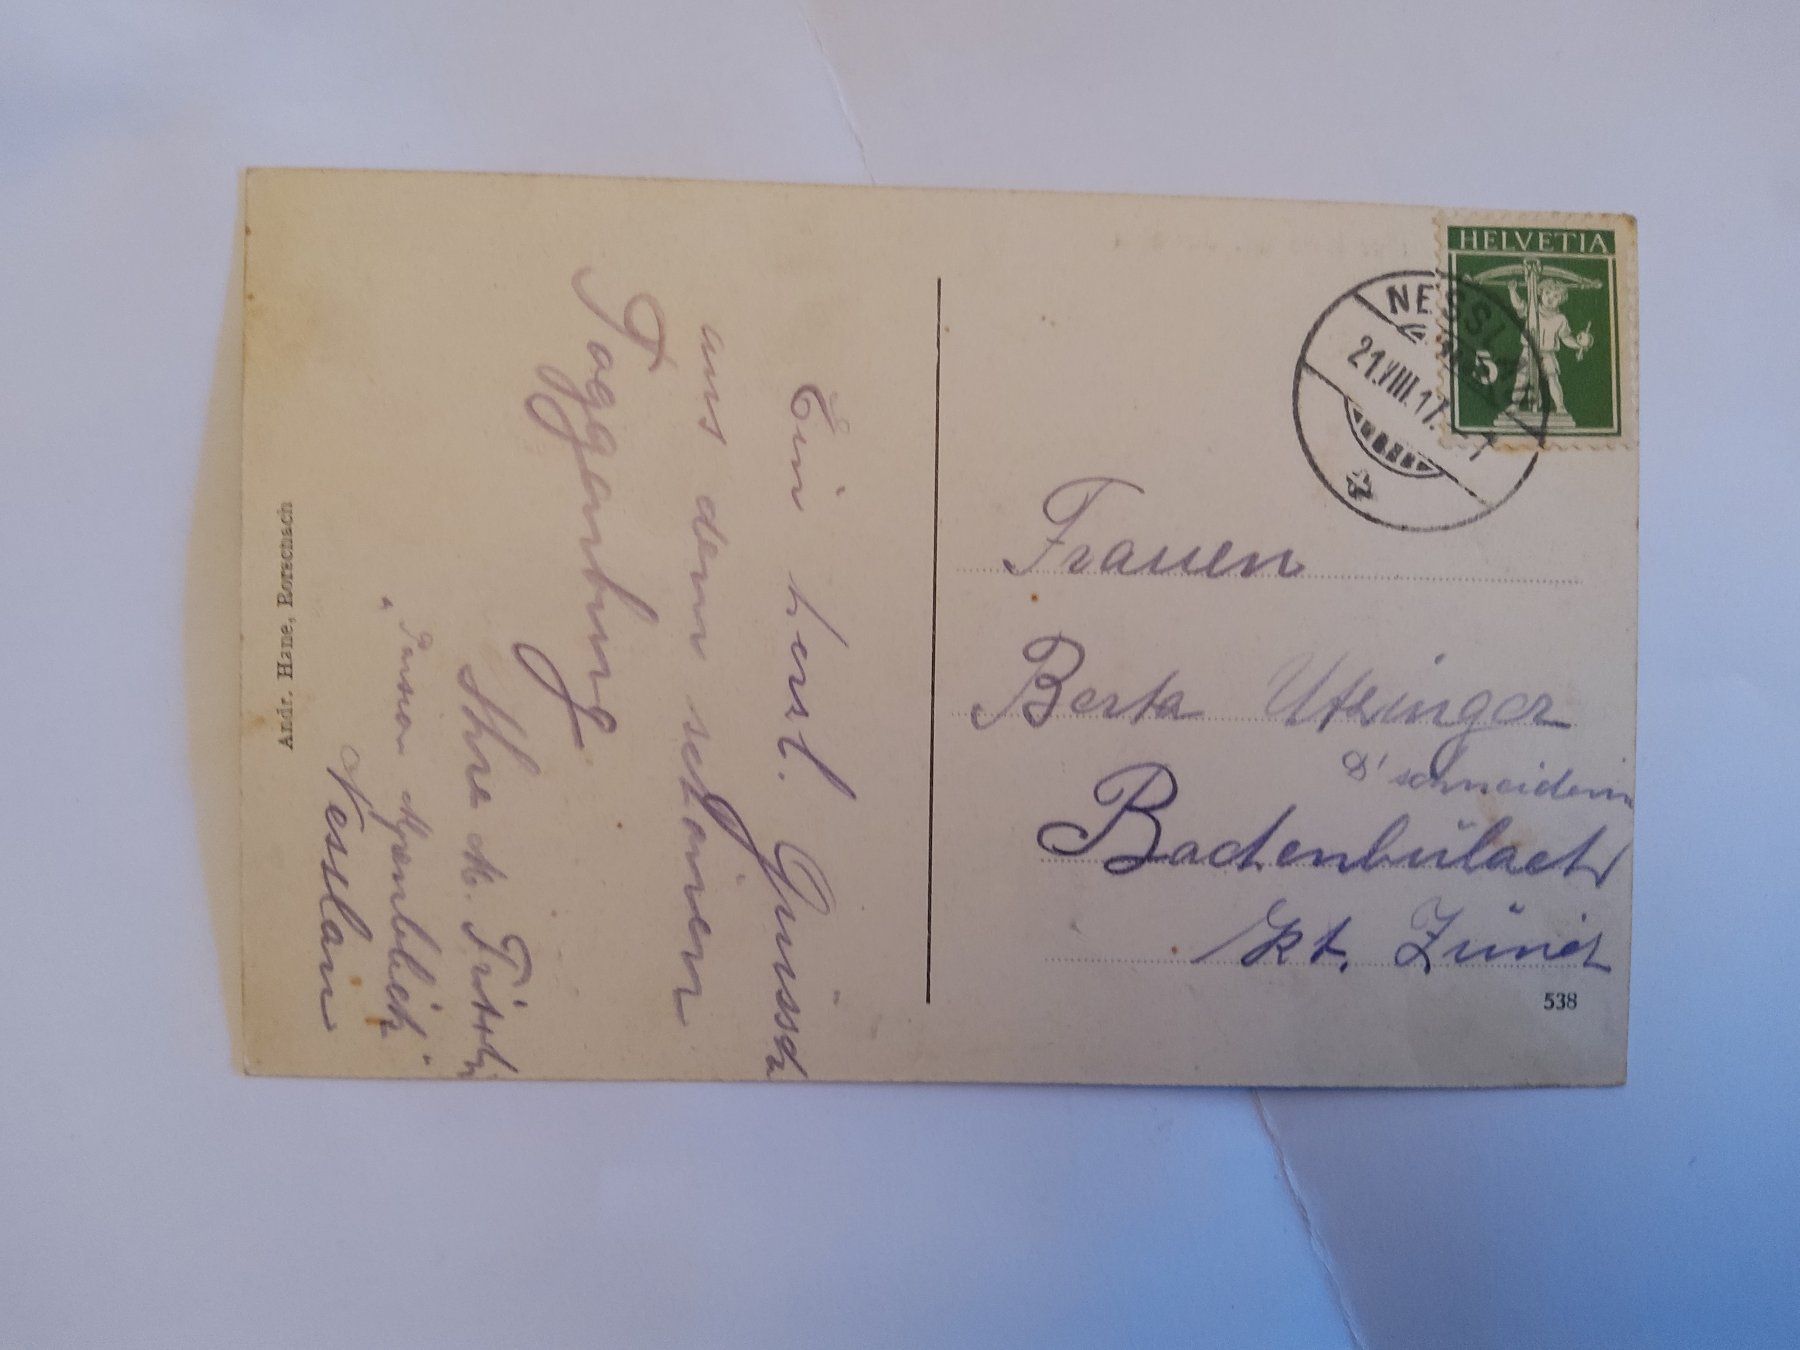 Ein herzl. Gruss
aus dem schönen
Toggenburg
Ihre M.
"Pension Alpenblick"
Nesslau
Andr. Hane, Rorschach
HELVETIA
5
NESSLAU
21.VIII.17.
Frauen
Berta Utzinger
D'schneiderin
Bachenbülach
Kt. Zürich
538